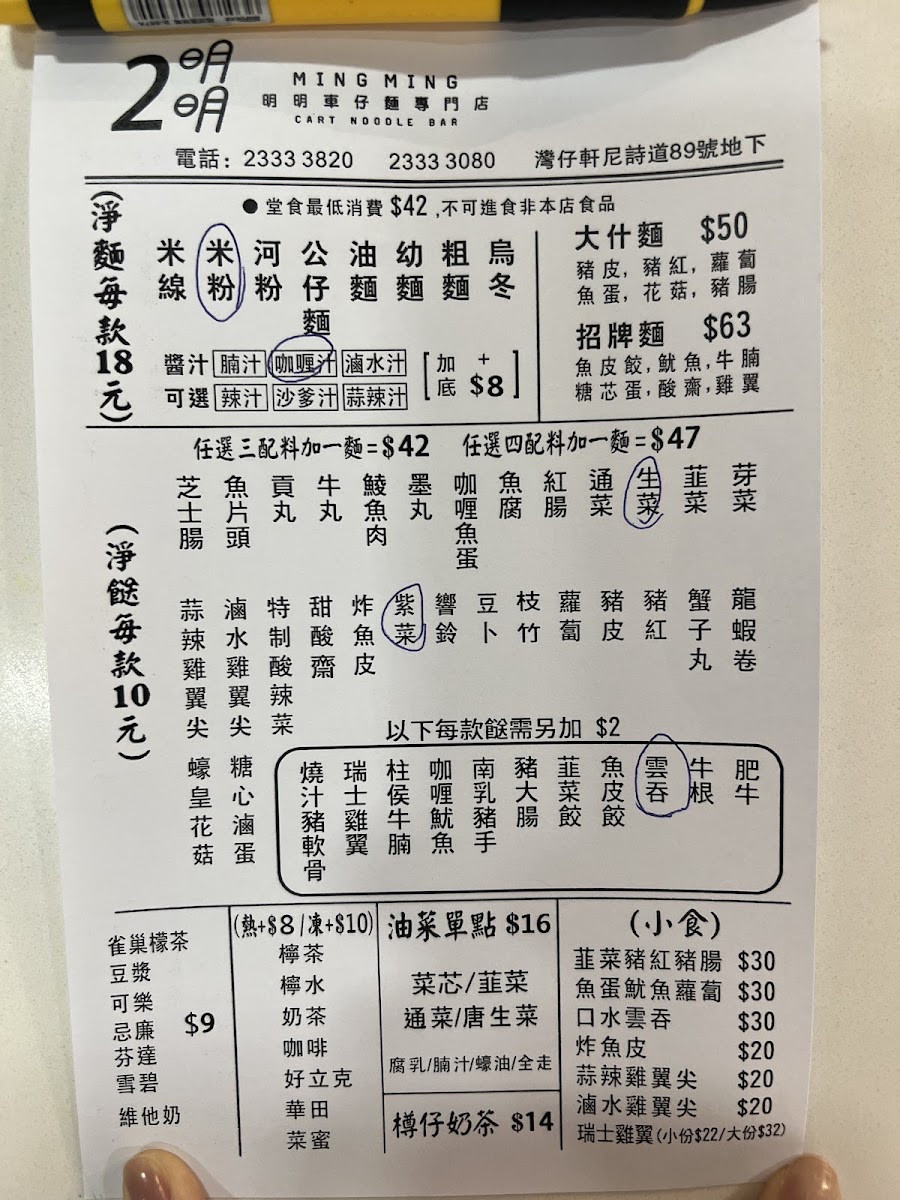 2 明明
MING MING
明明車仔麵專門店
CART NOODLE BAR
電話: 2333 3820 2333 3080 灣仔軒尼詩道89號地下
(淨麵每款18元)
●堂食最低消費 $42 ,不可進食非本店食品
米線 米粉 河粉 公仔麵 油麵 幼麵 粗麵 烏冬
醬汁可選
腩汁 咖喱汁 滷水汁
辣汁 沙爹汁 蒜辣汁
[加底 +$8]
大什麵 $50
豬皮, 豬紅, 蘿蔔
魚蛋, 花菇, 豬腸
招牌麵 $63
魚皮餃,魷魚,牛腩
糖芯蛋,酸齋,雞翼
任選三配料加一麵=$42 任選四配料加一麵=$47
(淨餸每款10元)
芝士腸 魚片頭 貢丸 牛丸 鯪魚肉 墨丸 咖喱魚蛋 魚腐 紅腸 通菜 生菜 韮菜 芽菜
蒜辣雞翼尖 滷水雞翼尖 特制酸辣菜 甜酸齋 炸魚皮 紫菜 響鈴 豆卜 枝竹 蘿蔔 豬皮 豬紅 蟹子丸 龍蝦卷
蠔皇花菇 糖心滷蛋
以下每款餸需另加 $2
燒汁豬軟骨 瑞士雞翼 柱侯牛腩 咖喱魷魚 南乳豬手 豬大腸 韮菜餃 魚皮餃 雲吞 牛根 肥牛
雀巢檬茶
豆漿
可樂
忌廉 $9
芬達
雪碧
維他奶
(熱+$8/凍+$10)
檸茶
檸水
奶茶
咖啡
好立克
華田
菜蜜
油菜單點 $16
菜芯/韮菜
通菜/唐生菜
腐乳/腩汁/蠔油/全走
樽仔奶茶 $14
(小食)
韮菜豬紅豬腸 $30
魚蛋魷魚蘿蔔 $30
口水雲吞 $30
炸魚皮 $20
蒜辣雞翼尖 $20
滷水雞翼尖 $20
瑞士雞翼(小份$22/大份$32)